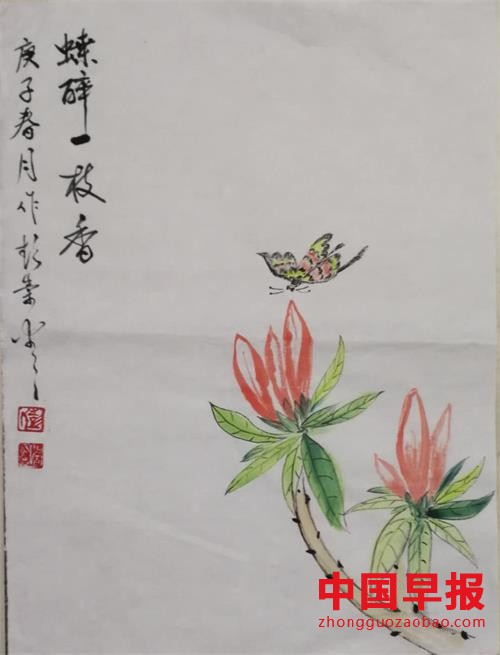 蝶醉一枝香
庚子春月作
中国早报
zhongguozaobao.com